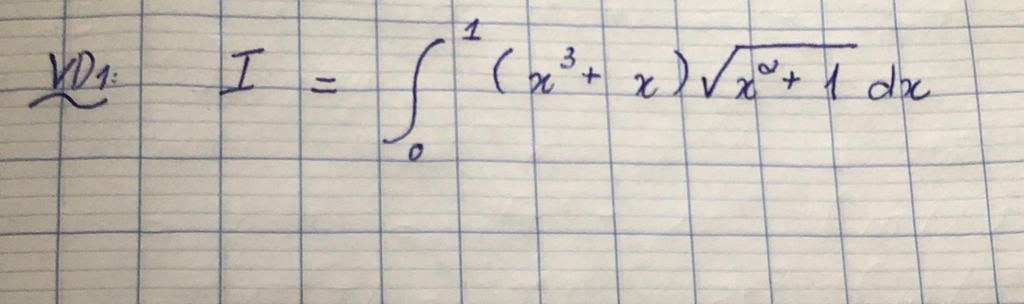 VD1: I = ∫₀¹ (x³ + x)√(x² + 1) dx